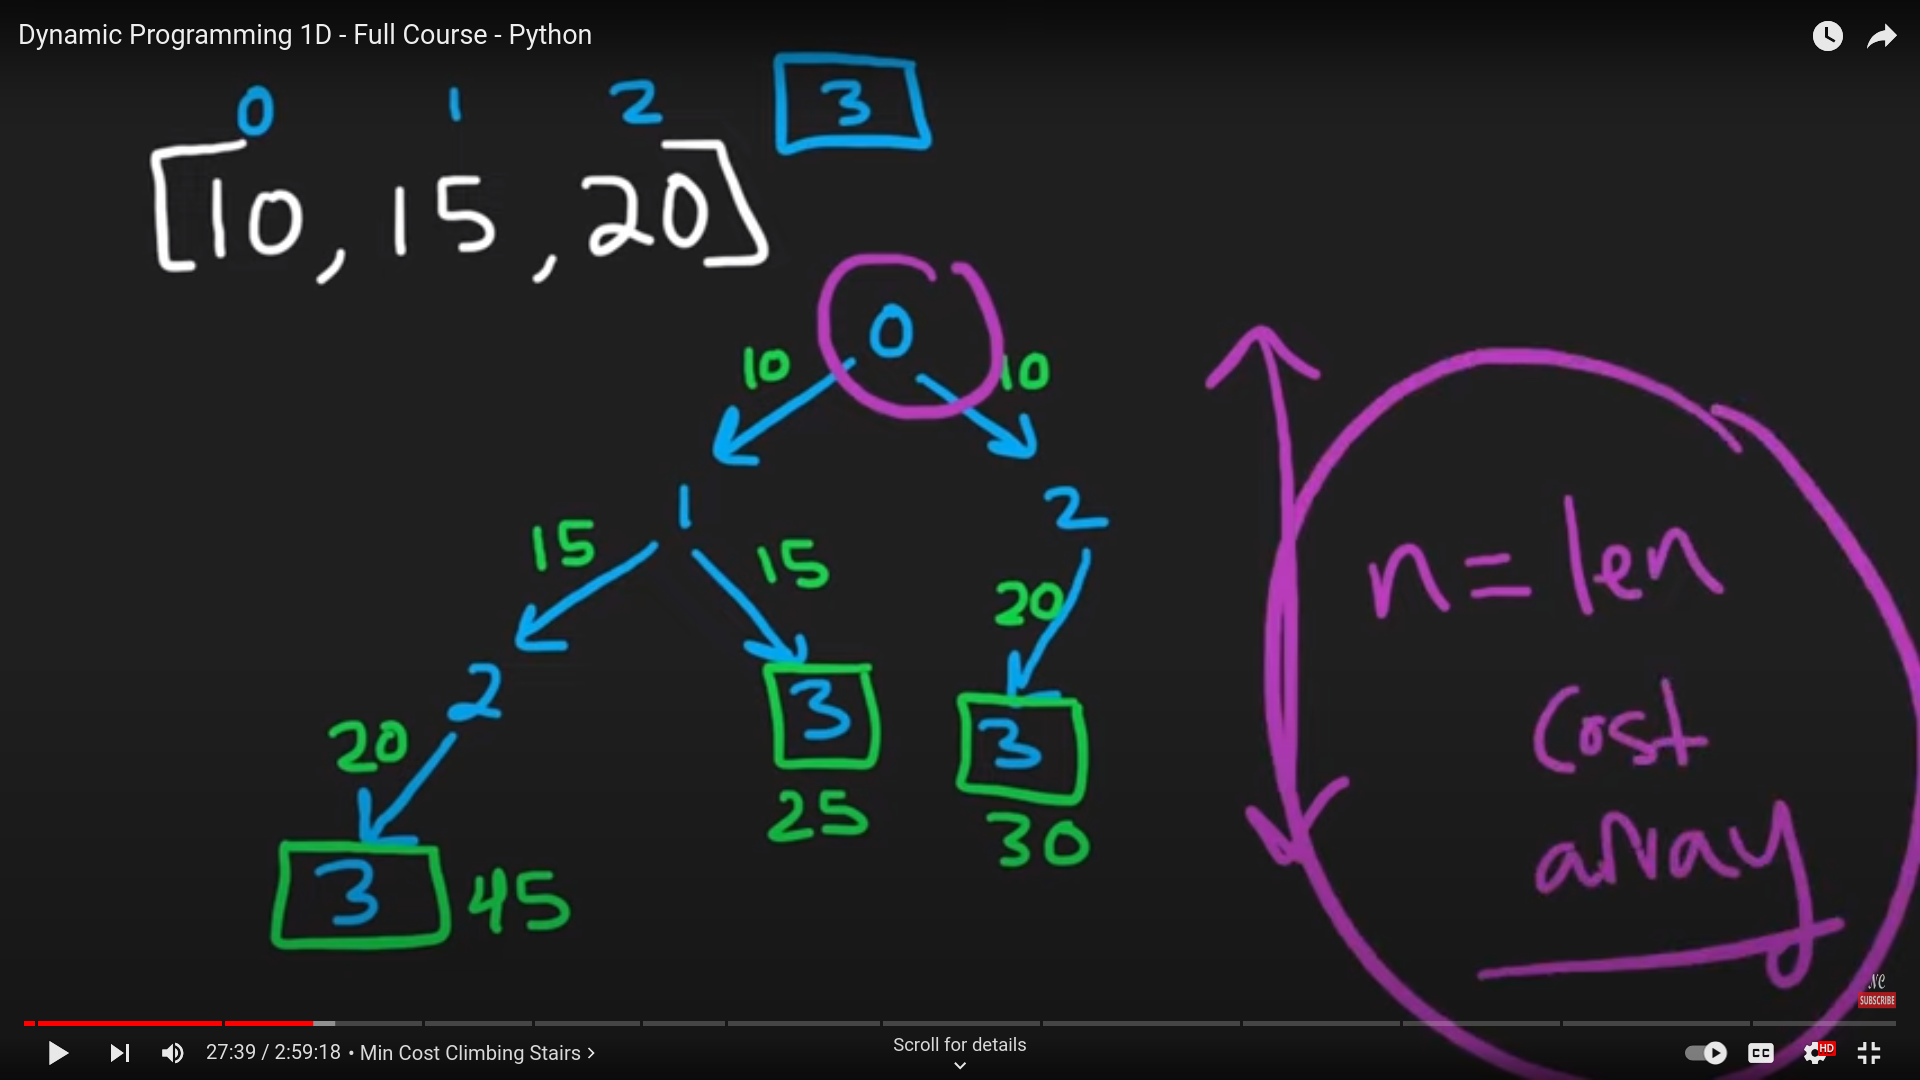 Dynamic Programming 1D - Full Course - Python
0 1 2 3
[10, 15, 20]
0
10 10
1 2
15 15 20
2 3 3
20 25 30
3 45
n = len
cost
array
NC
SUBSCRIBE
27:39 / 2:59:18 • Min Cost Climbing Stairs >
Scroll for details
CC
HD